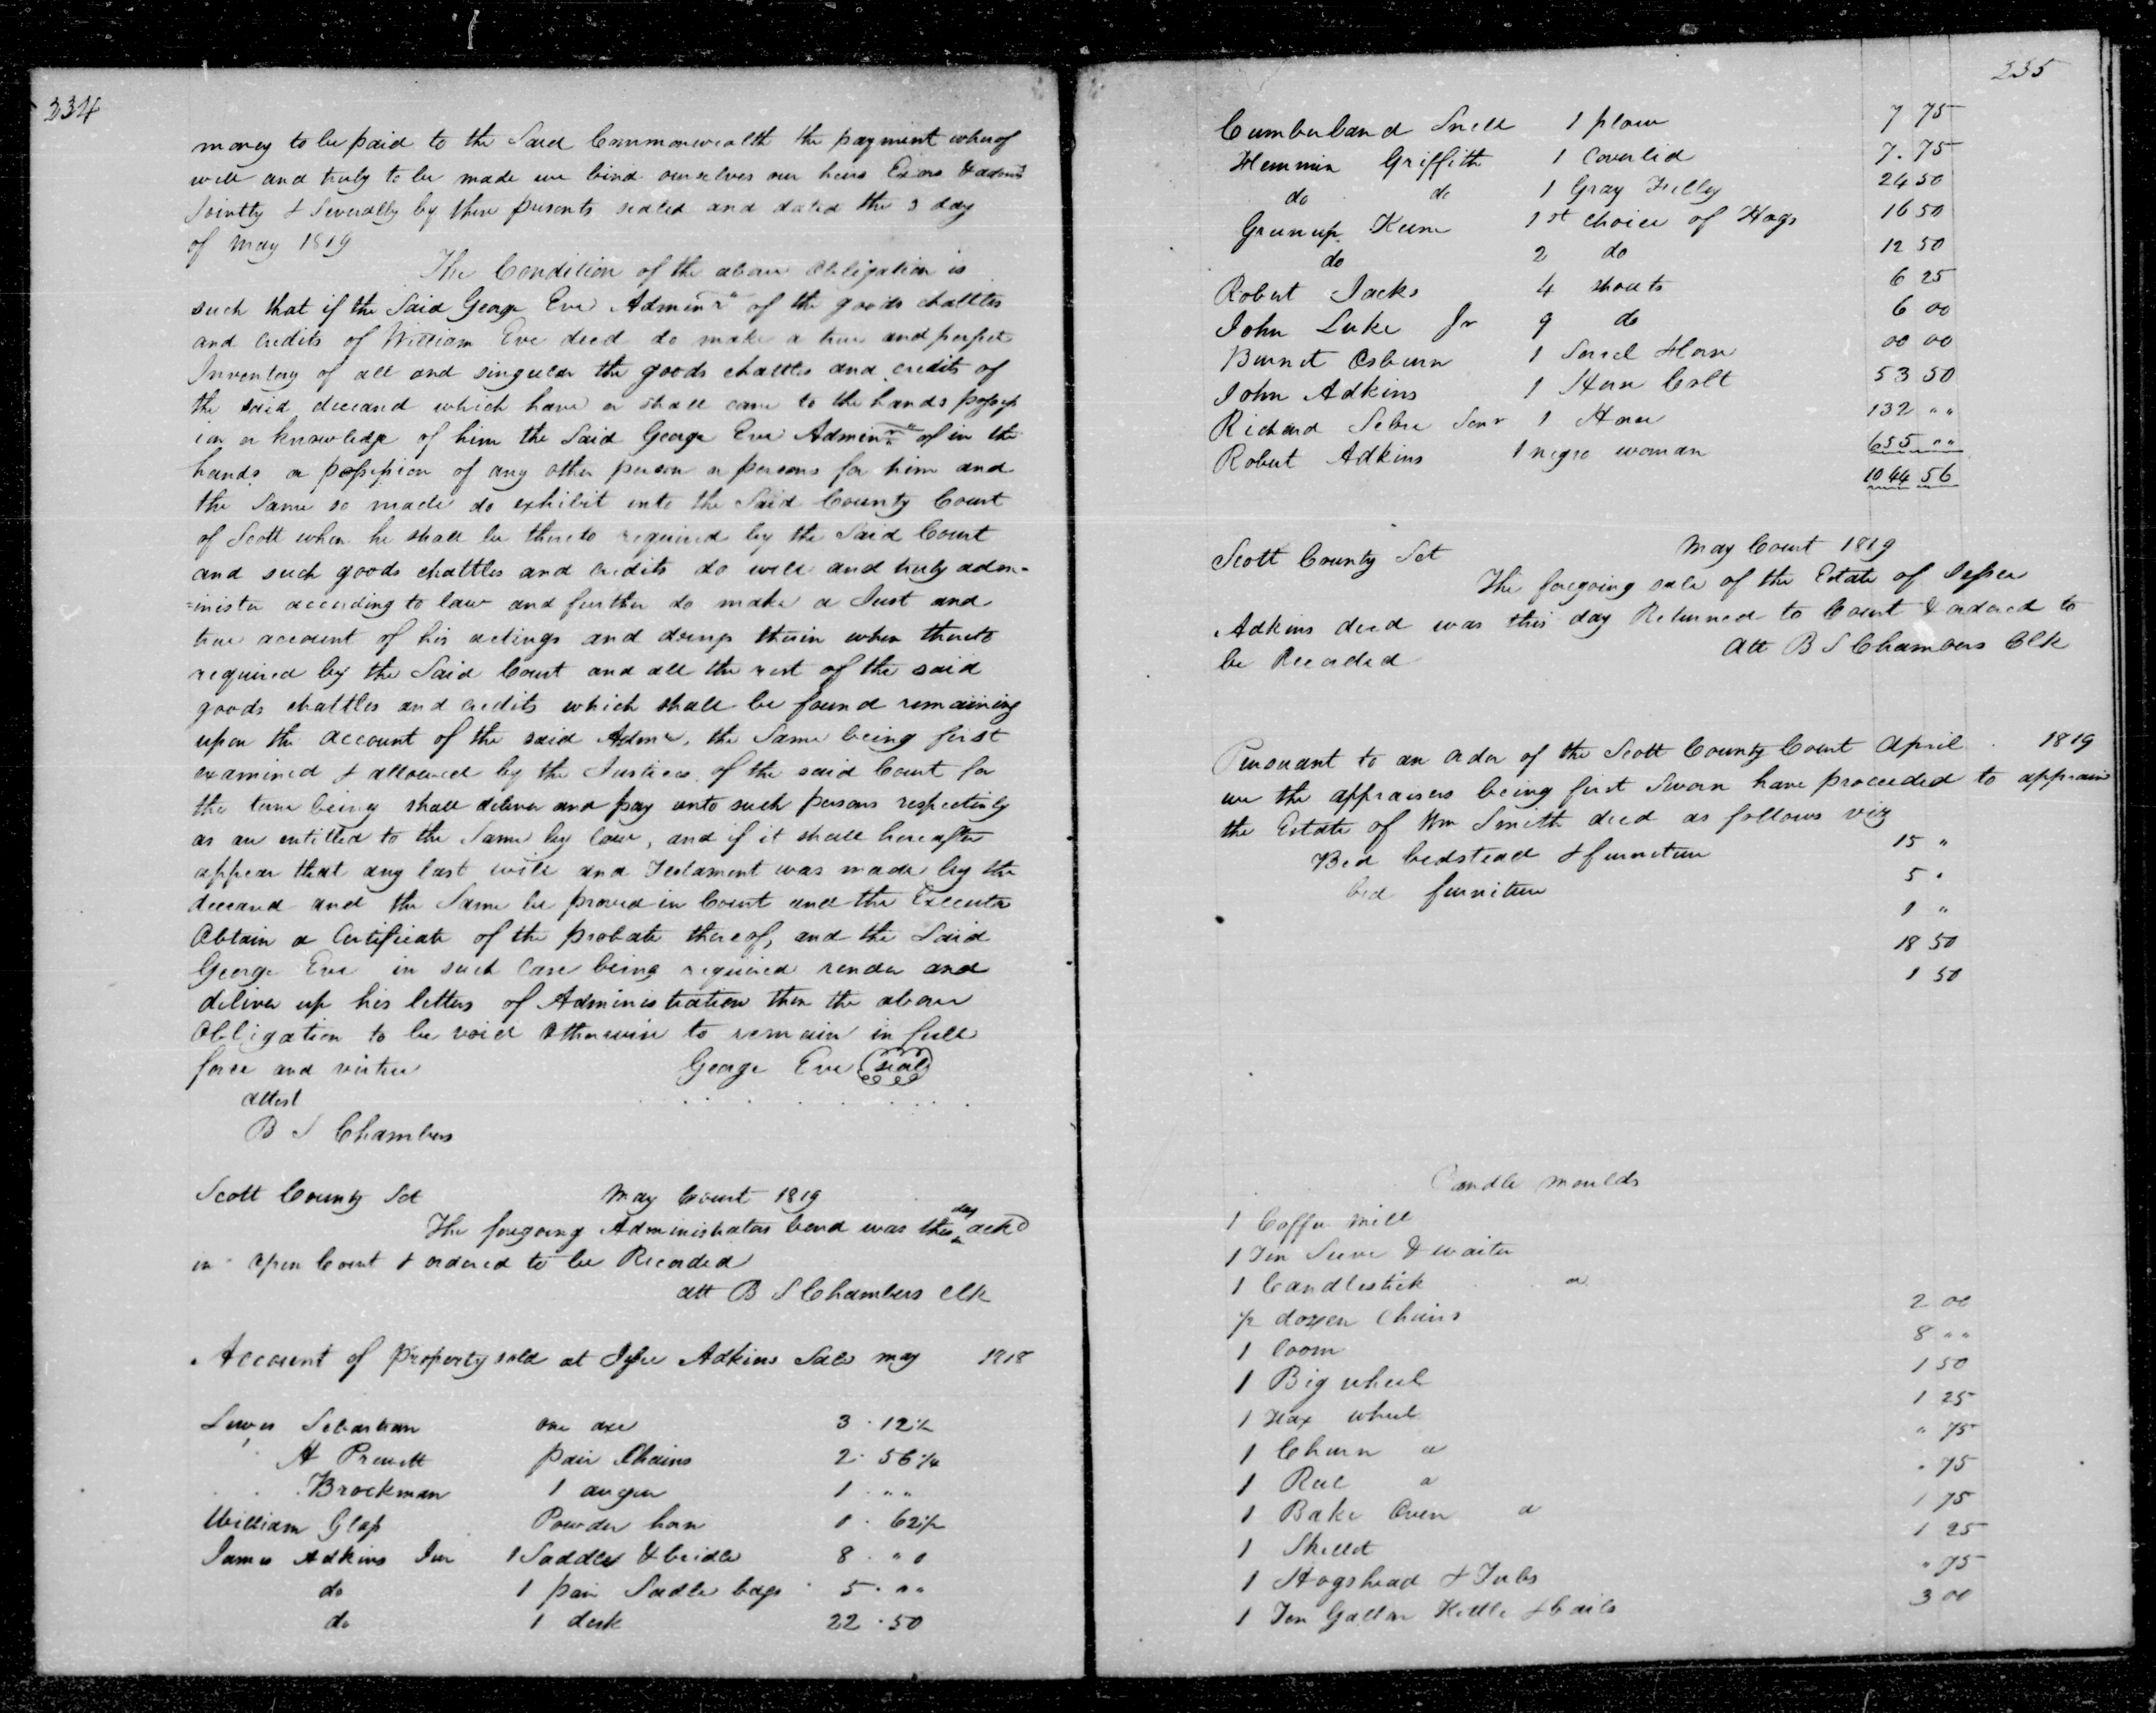 234
money to be paid to the Said Commonwealth the payment wherof
well and truly to be made we bind ourselves our heirs Exors & admrs
Jointly & Severally by these presents sealed and dated the 3 day
of May 1819
The Condition of the above Obligation is
such that if the Said George Eve Adminr of the goods chattles
and credits of William Eve decd do make a true and perfect
Inventory of all and singular the goods chattles and credits of
the said deceased which have or shall come to the hands possess
ion or knowledge of him the Said George Eve Adminr of in the
hands or possession of any other person or persons for him and
the Same so made do exhibit into the Said County Court
of Scott when he shall be thereto required by the Said Court
and such goods chattles and credits do well and truly adm-
=inister according to law and further do make a Just and
true account of his actings and doings therin when thereto
required by the Said Court and all the rest of the said
goods chattles and credits which shall be found remaining
upon the account of the said Admr, the Same being first
examined & allowed by the Justices of the said Court for
the time being shall deliver and pay unto such persons respectively
as are entitled to the Same by law, and if it shall hereafter
appear that any last will and Testament was made by the
deceased and the Same be proved in Court and the Executor
Obtain a Certificate of the probate thereof, and the Said
George Eve in such Case being required render and
deliver up his letters of Administration then the above
Obligation to be void Otherwise to remain in full
force and virtue George Eve seal
attest
B S Chambers
Scott County Sct May Court 1819
The foregoing Administrators bond was this day ackd
in Open Court & ordered to be Recorded
att B S Chambers Clk
Account of Property sold at Jesse Adkins Sale may 1818
Lewis Sebastian one axe 3 . 12 1/2
H Prewitt pair Chains 2 . 56 1/4
Brockman 1 auger 1 . " "
William Glass Powder horn 1 . 62 1/2
James Adkins Jur 1 Saddle & bridle 8 . " "
do 1 pair Sadle bags 5 . " "
do 1 desk 22 . 50
235
Cumberland Snell 1 plow 7 75
Hemmin Griffith 1 Coverlid 7 . 75
do do 1 Gray Filley 24 50
Greenup Keene 1st choice of Hogs 16 50
do 2 do 12 50
Robert Jacks 4 shoats 6 25
John Luke Jr 9 do 6 00
Burnet Osburn 1 Sorrel Horse 00 00
John Adkins 1 Horse Colt 53 50
Richard Sebre Senr 1 Horse 132 " "
Robert Adkins 1 negro woman 655 " "
1044 56
Scott County Sct May Court 1819
The foregoing sale of the Estate of Jesse
Adkins decd was this day Returned to Court & ordered to
be Recorded att B S Chambers Clk
Pursuant to an order of the Scott County Court April 1819
we the appraisers being first Sworn have proceeded to appraise
the Estate of Wm Smith decd as follows viz
Bed bedstead & furniture 15 "
bed furniture 5 "
1 "
18 50
1 50
Candle moulds
1 Coffee Mill
1 Tin Sieve & waiter
1 Candlestick a
1/2 dozen Chairs 2 00
1 Loom 8 " "
1 Big wheel 1 50
1 Flax wheel 1 25
1 Churn a " 75
1 Reel a " 75
1 Bake Oven a 1 75
1 Skillet 1 25
1 Hogshead & Tubs " 75
1 Ten Gallon Kettle & bails 3 00